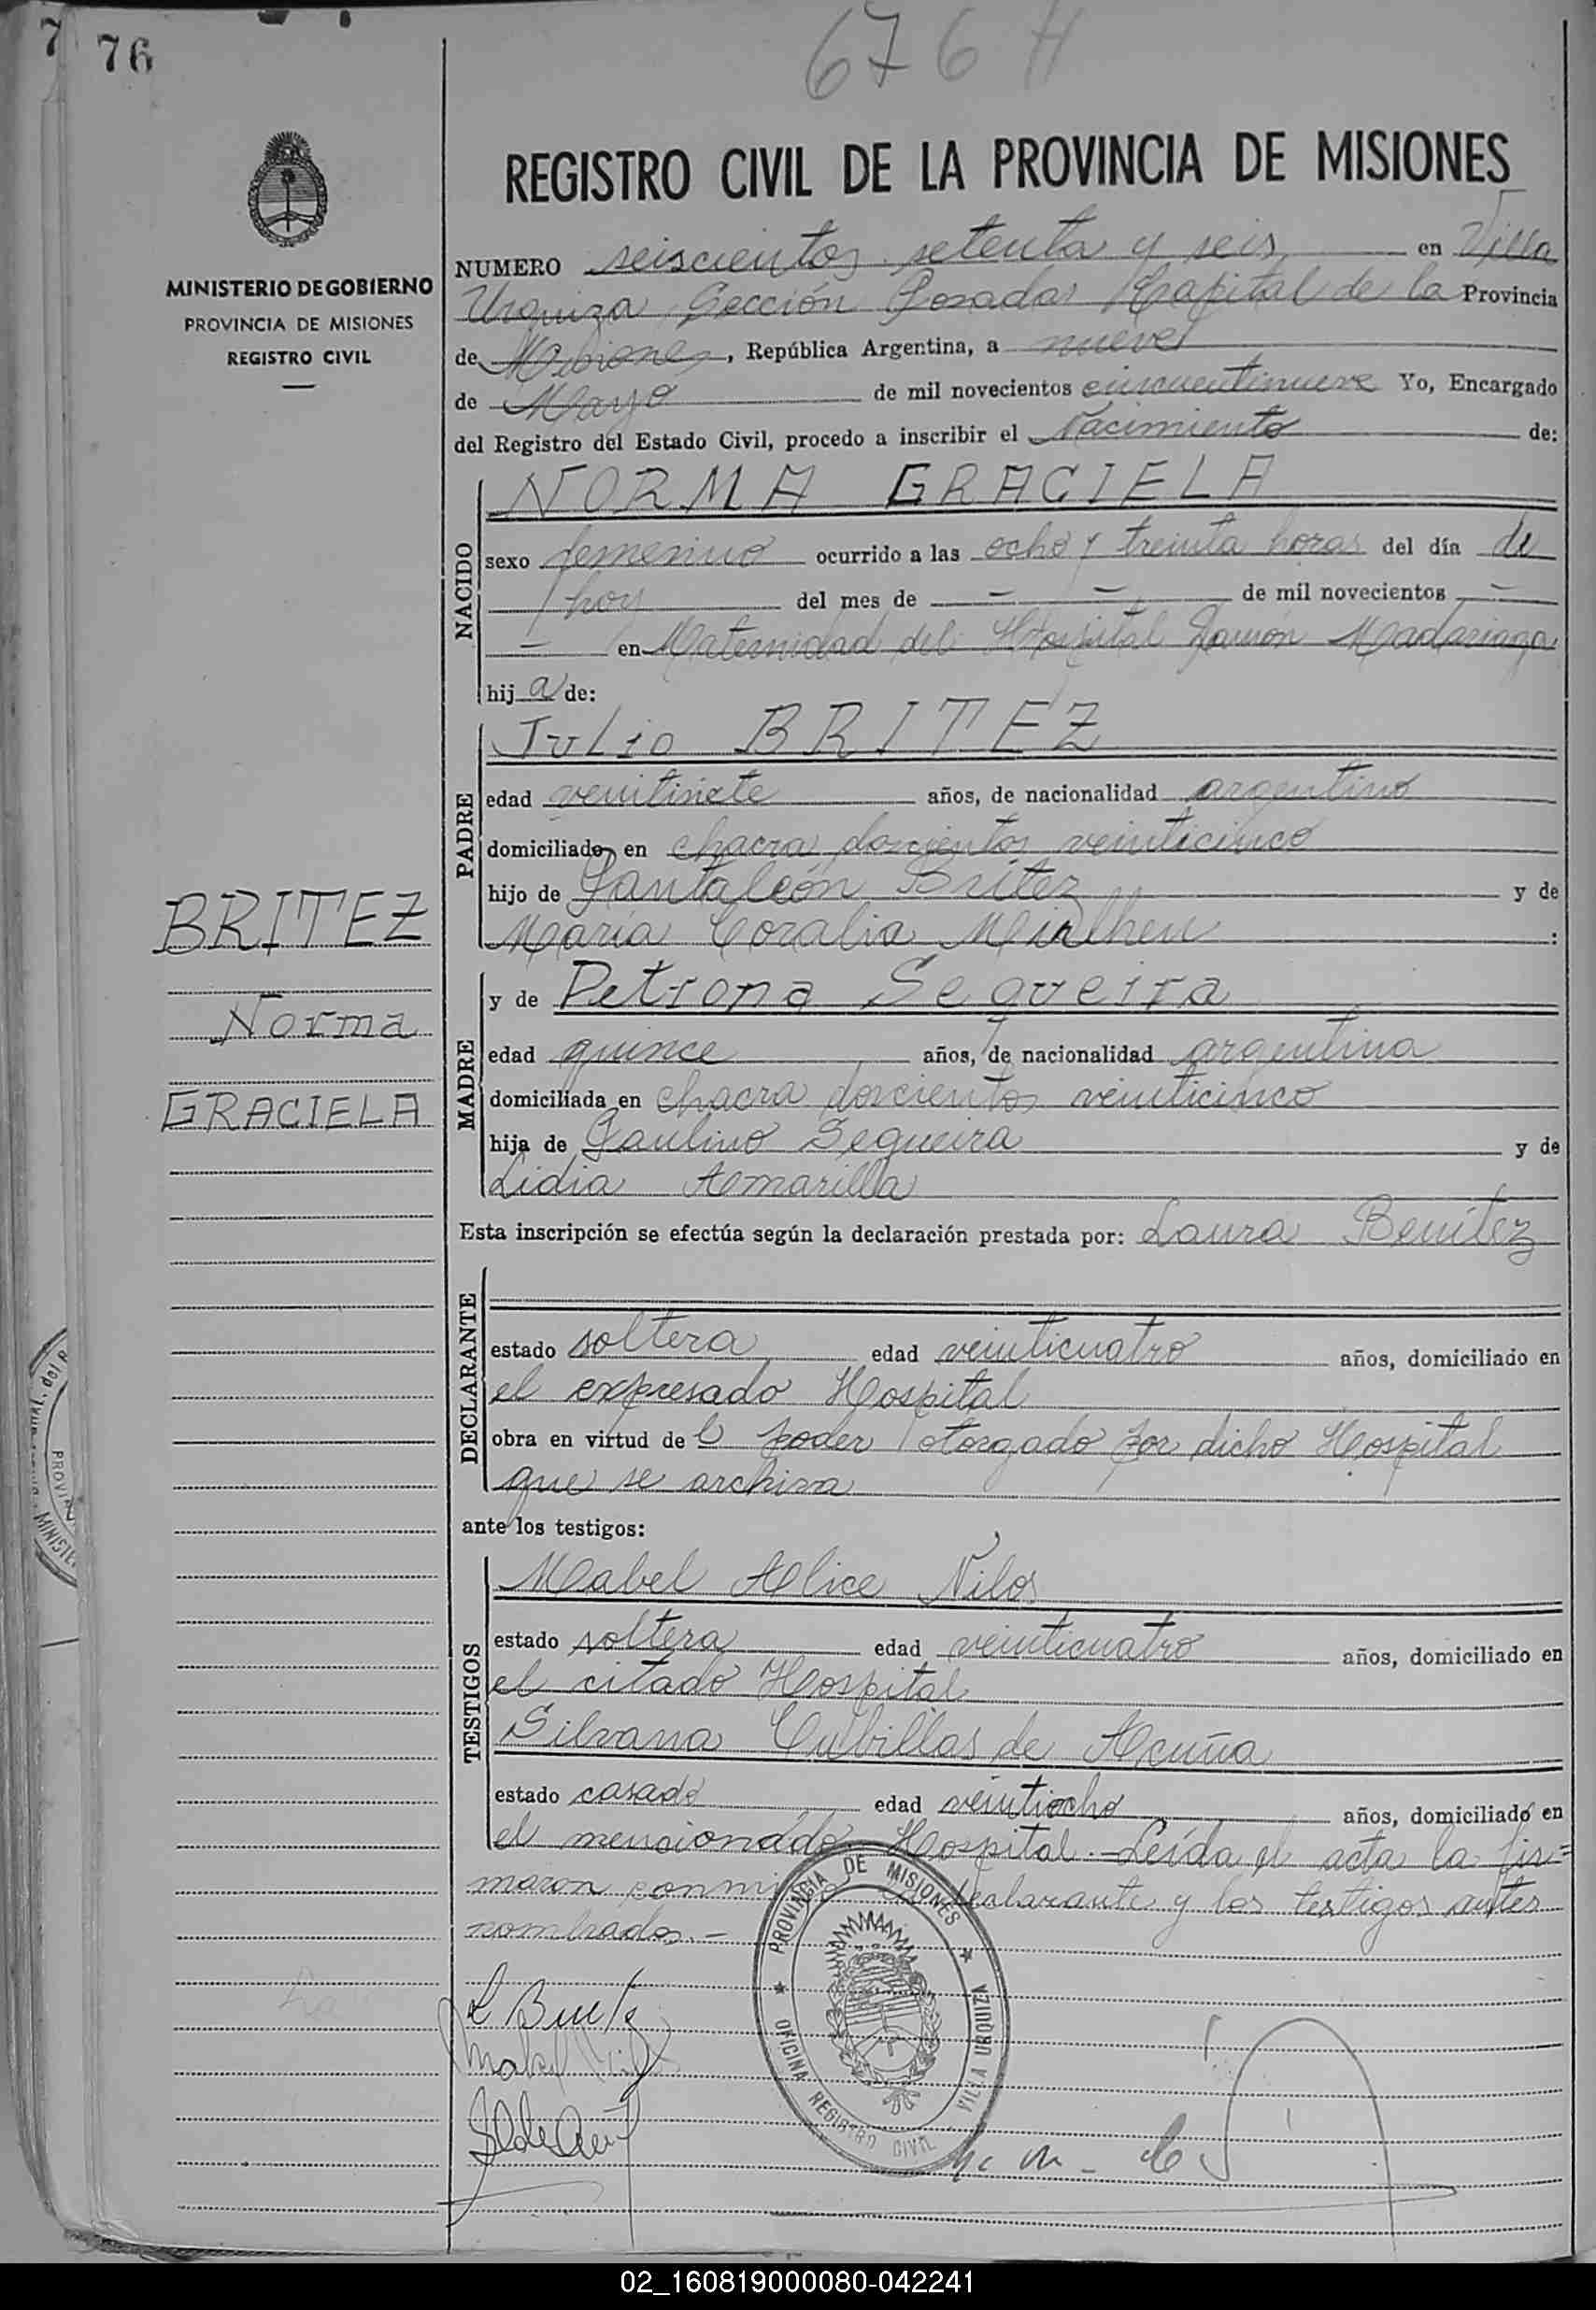 76
676 H
MINISTERIO DE GOBIERNO
PROVINCIA DE MISIONES
REGISTRO CIVIL
REGISTRO CIVIL DE LA PROVINCIA DE MISIONES
NUMERO seiscientos setenta y seis en Villa
Urquiza Sección Posadas Capital de la Provincia
de Misiones, República Argentina, a nueve
de Mayo de mil novecientos cincuentinueve Yo, Encargado
del Registro del Estado Civil, procedo a inscribir el Nacimiento de:
NACIDO
NORMA GRACIELA
sexo femenino ocurrido a las ocho y treinta horas del día de
hoy del mes de — — de mil novecientos —
— en Maternidad del Hospital Ramón Madariaga
hija de:
PADRE
Julio BRITEZ
edad veintisiete años, de nacionalidad argentino
domiciliado en chacra doscientos veinticinco
hijo de Pantaleón Britez y de
María Coralia :
MADRE
y de Petrona Segueira
edad quince años, de nacionalidad argentina
domiciliada en chacra doscientos veinticinco
hija de Paulino Segueira y de
Lidia Amarilla
BRITEZ
Norma
GRACIELA
Esta inscripción se efectúa según la declaración prestada por: Laura Benítez
DECLARANTE
estado soltera edad veinticuatro años, domiciliado en
el expresado Hospital
obra en virtud del poder otorgado por dicho Hospital
que se archiva
ante los testigos:
TESTIGOS
Mabel Alice Nilos
estado soltera edad veinticuatro años, domiciliado en
el citado Hospital
Silvana Cubillas de Acuña
estado casada edad veintiocho años, domiciliado en
el mencionado Hospital.—Leída el acta la fir=
maron conmigo declarante y los testigos antes
nombrados.—
PROVINCIA DE MISIONES
OFICINA REGISTRO CIVIL
VILLA URQUIZA
02_160819000080-042241